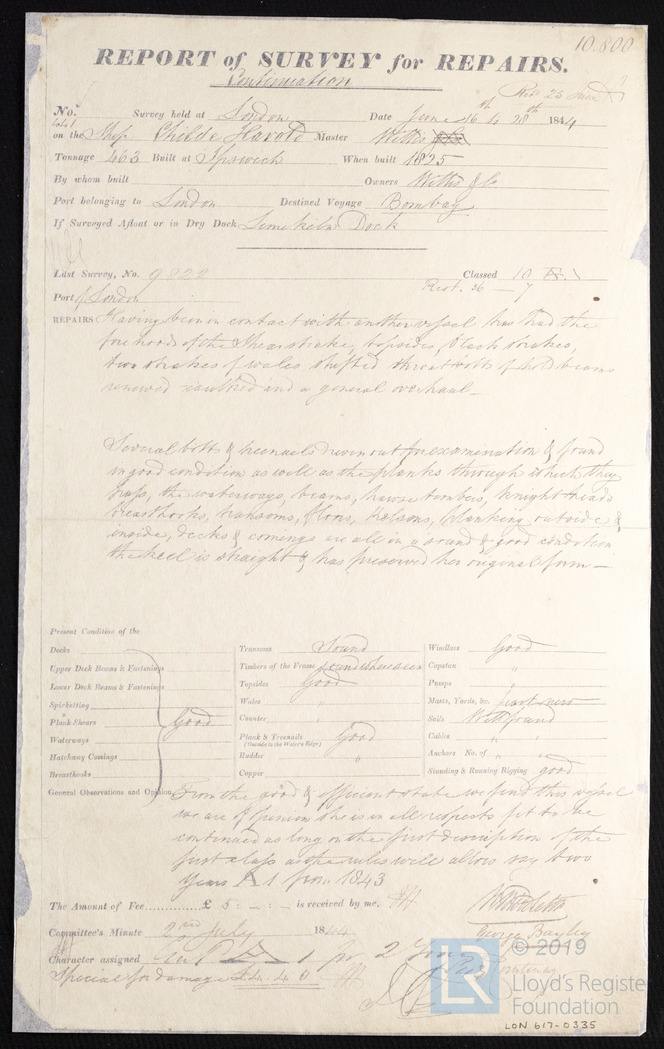 10.800
REPORT of SURVEY for REPAIRS.
Continuation
Rec 25 June
No. Survey held at London Date June 16th & 28th 1844
441
on the Ship Childe Harold Master Willis
Tonnage 463 Built at Ipswich When built 1825
By whom built Owners Willis & Co
Port belonging to London Destined Voyage Bombay
If Surveyed Afloat or in Dry Dock Limekiln Dock
Last Survey, No. 9822 Classed 10 A.1
Rest. 36 — 7
Port of London
REPAIRS Having been in contact with another vessel has had the
fore hoods of the shearstrake, topsides, black strakes,
two strakes of wales shifted throat bolts of hold beams
renewed caulked and a general overhaul —
Several bolts & treenails driven out for examination & found
in good condition as well as the planks through which they
pass, the waterways, beams, hawse timbers, knight heads
breasthooks, transoms, floors, kelsons, planking outside &
inside, decks & comings are all in a sound & good condition
the keel is straight & has preserved her original form —
Present Condition of the
Decks Transoms Sound Windlass Good
Upper Deck Beams & Fastenings Timbers of the Frame Capstan "
Lower Deck Beams & Fastenings Topsides Good Pumps "
Spirketting Wales " Masts, Yards, &c. part new
Plank Shears Good Counter " Sails Well found
Waterways Plank & Treenails Good Cables " "
(Outside to the Water's Edge)
Hatchway Comings Rudder " Anchors No. of "
Breasthooks Copper Standing & Running Rigging good
General Observations and Opinion, From the good & efficient state we find this vessel
we are of opinion she is in all respects fit to be
continued as long on the first description of the
first class as the rules will allow say two
Years A 1 from 1843
The Amount of Fee............ £ 5 : – : – is received by me.
George Bayley
Committee's Minute 2nd July 1844
Character assigned A 1 for 2 Years
Special for damage £4.4.0
© 2019
LR
Lloyd's Register
Foundation
LON 617-0335